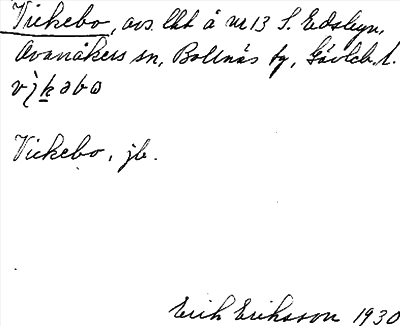 Vickebo, avs. lht å nr 13 S. Edsbyn,
Ovanåkers sn, Bollnäs tg, Gävleb. l.
Vickebo, jb.
Erik Eriksson 1930